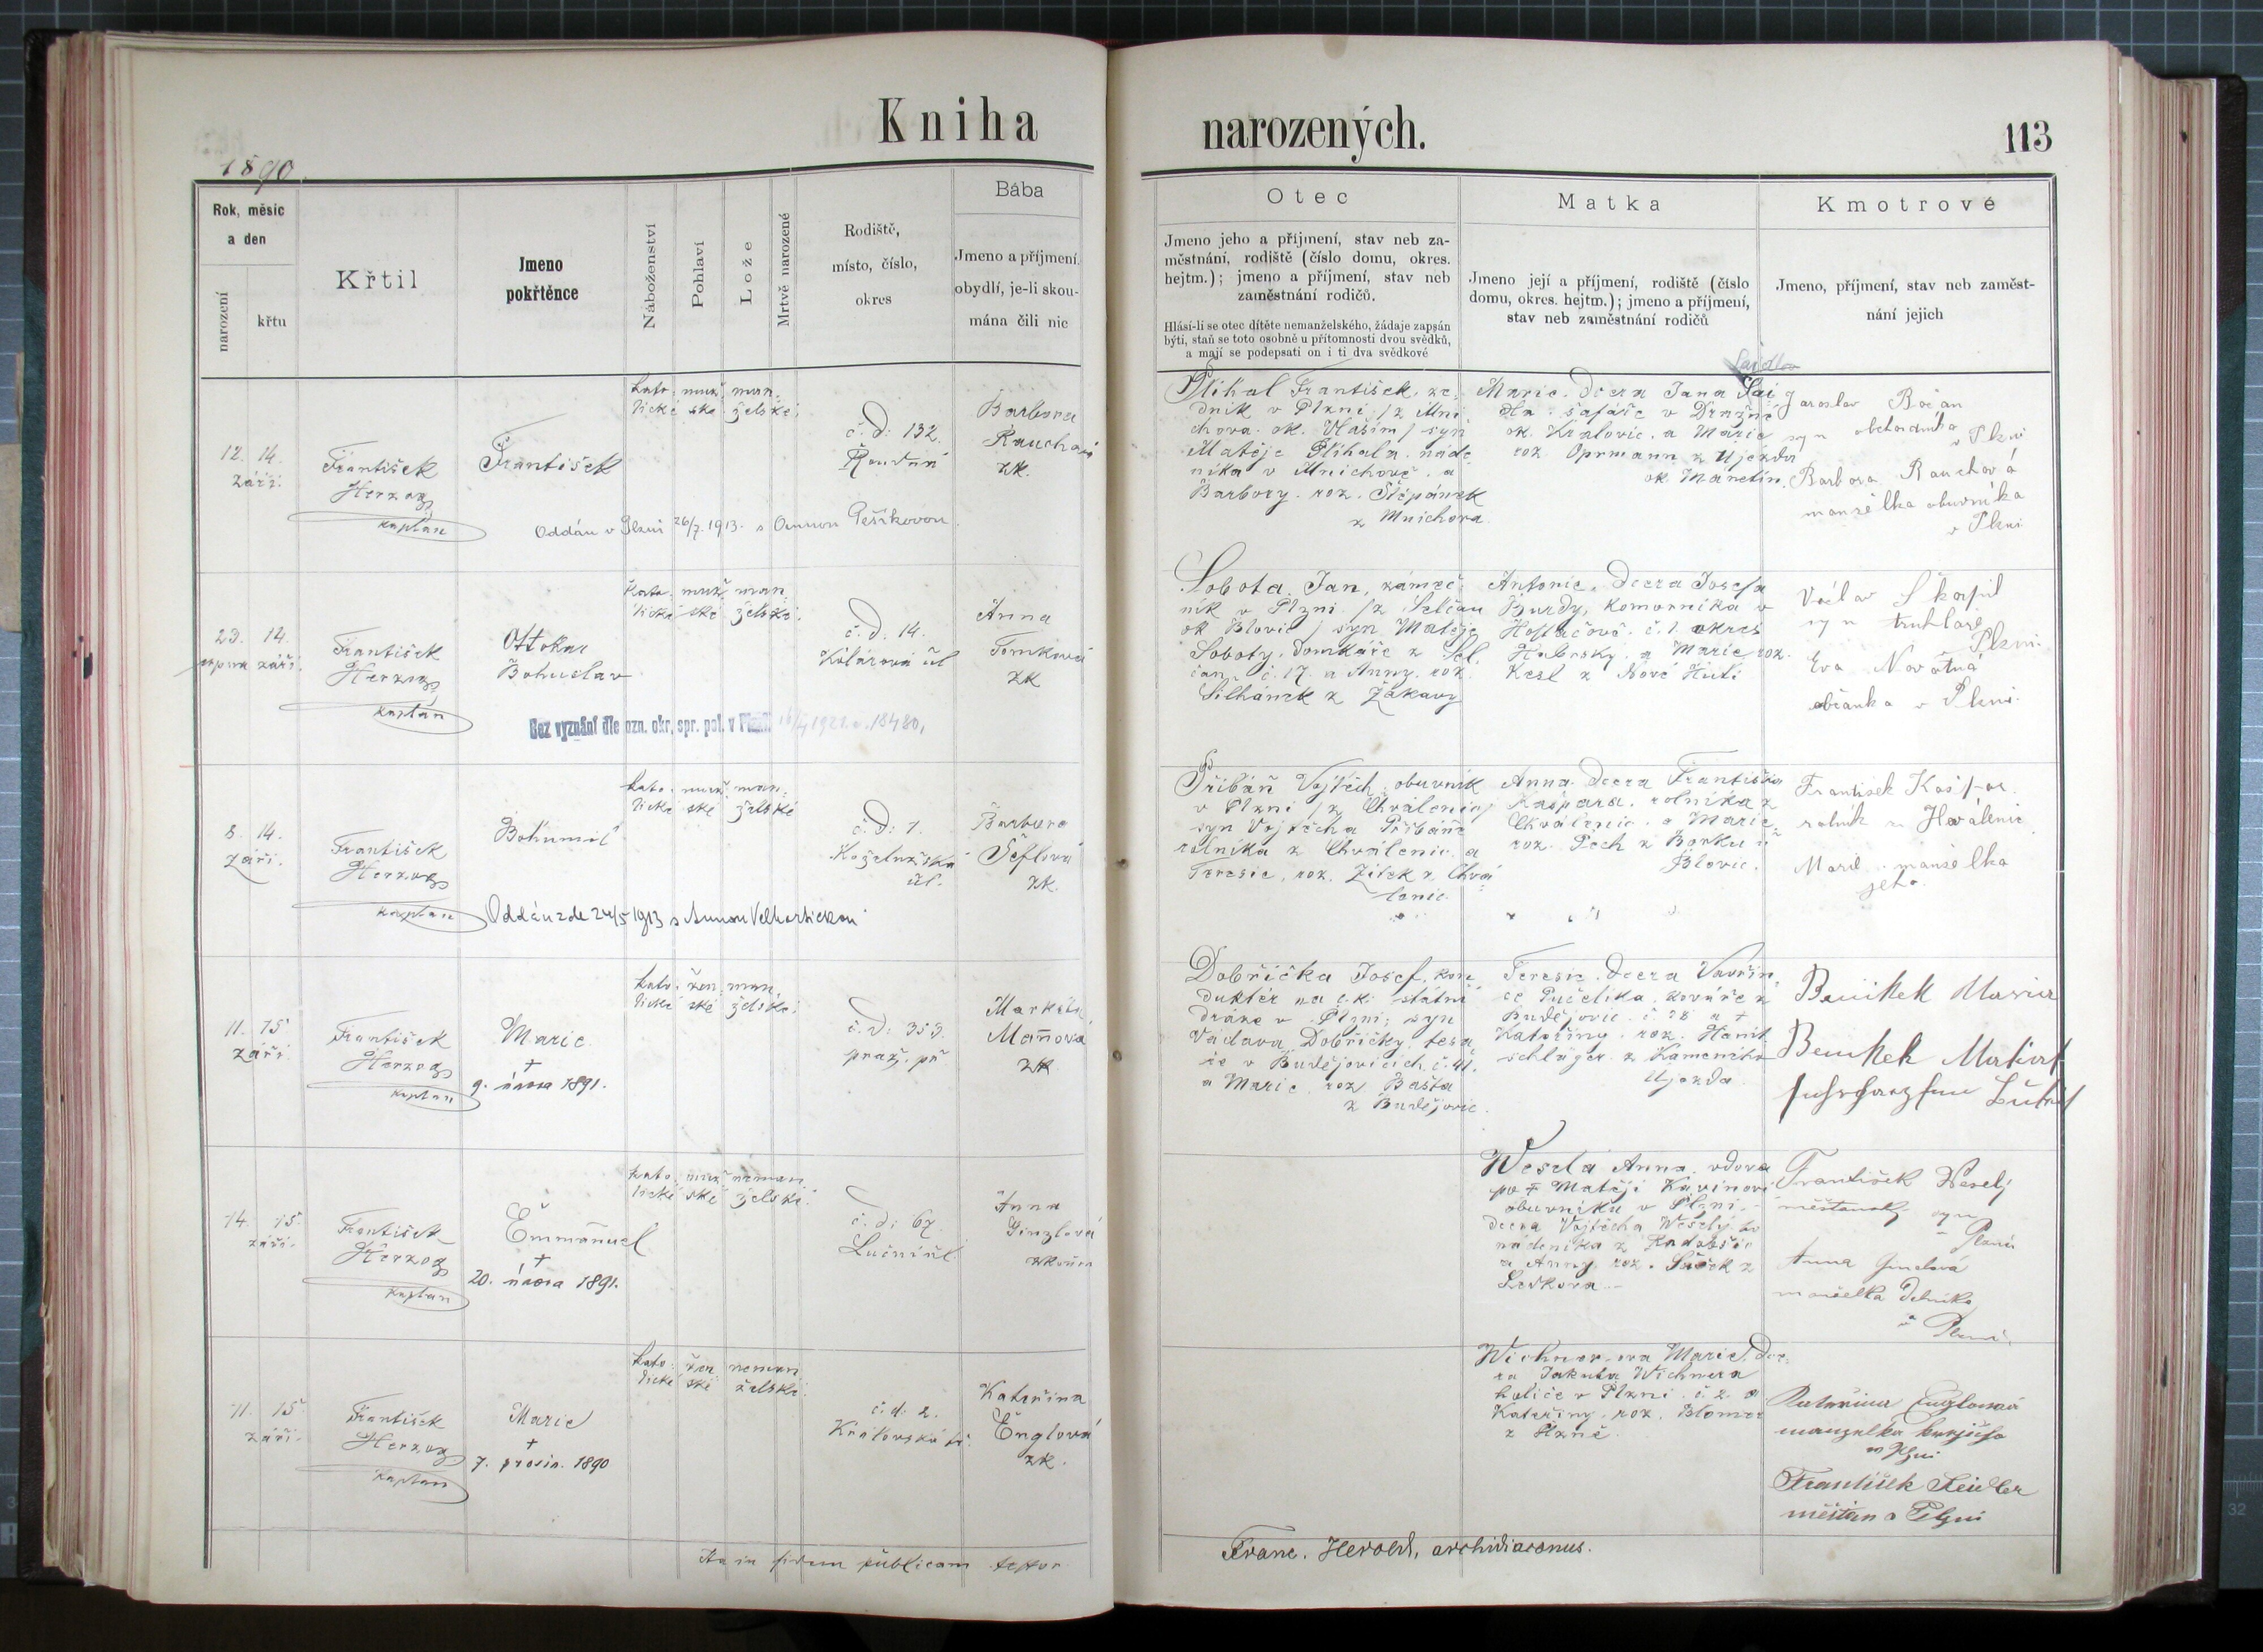 Kniha
narozených.
113
1890.
Rok, měsíc
a den
narození
křtu
Křtil
Jmeno
pokřtěnce
Náboženství
Pohlaví
Lože
Mrtvě narozené
Rodiště,
místo, číslo,
okres
Bába
Jmeno a příjmení,
obydlí, je-li skou-
mána čili nic
Otec
Jmeno jeho a příjmení, stav neb za-
městnání, rodiště (číslo domu, okres.
hejtm.); jmeno a příjmení, stav neb
zaměstnání rodičů.
Hlásí-li se otec dítěte nemanželského, žádaje zapsán
býti, staň se toto osobně u přítomnosti dvou svědků,
a mají se podepsati on i ti dva svědkové
Matka
Jmeno její a příjmení, rodiště (číslo
domu, okres. hejtm.); jmeno a příjmení,
stav neb zaměstnání rodičů
Kmotrové
Jmeno, příjmení, stav neb zaměst-
nání jejich
12. 14.
září.
František
Herzog
kaplan
František
kato- muž man-
lické ské želské
č. d. 132.
Roudná
Barbora
Rauchová
zk.
Oddán v Plzni 26/7. 1913. s Annou Pešíkovou
Plíhal František, ze-
dník v Plzni /z Mni-
chova. ok. Vlašim/ syn
Matěje Plíhala náde-
níka v Mnichově a
Barbory roz. Štěpánek
z Mnichova
Marie. dcera Jana Sai-
dla šafáře v Dražni
ok. Kralovic. a Marie
roz. Oprmann z Ujezda
ok. Manětín.
Jaroslav
syn obchodníka
v Plzni
Barbora Rauchová
manželka obuvníka
v Plzni
23. 14.
srpna září
František
Herzog
kaplan
Ottokar
Bohuslav
kato- muž man-
lické ské želské
č. d. 14.
Kolárová ul
Anna
Tomková
zk
Bez vyznání dle ozn. okr. spr. pol. v Plzni 1921 18480,
Sobota Jan, zámeč-
ník v Plzni /z Selčan
ok Blovic/ syn Matěje
Soboty, domkáře z Sel-
čan č. 17. a Anny, roz.
Silhánek z Žákavy
Antonie. dcera Josefa
Burdy, komorníka v
č. 1. okres
a Marie roz.
Kesl z Nové Huti
Václav Škopil
syn truhláře
v Plzni.
Eva Novotná
občanka v Plzni.
8. 14.
září.
František
Herzog
kaplan
Bohumil
kato- muž man-
lické ské želské
č. d. 1.
Koželužská
úl.
Barbora
Šeflová
zk.
Oddán zde 24/5 1913 s Annou Velhartickou
Přibáň Vojtěch obuvník
v Plzni /z Chválenic/
syn Vojtěcha Přibáně
rolníka z Chválenic a
Teresie, roz. Žítek z Chvá-
lenic
Anna dcera Františka
Kašpara. rolníka z
Chválenic. a Marie
roz. Pech z Borku u
Blovic.
František Kašpar
rolník
Marie manželka
jeho.
11. 15.
září
František
Herzog
kaplan
Marie
†
9. února 1891.
kato- žen- man-
lické ské želské
č. d. 353.
praž. př
Markéta
Maňová
zk
Dobřička Josef, kon-
duktér na c. k. státní
dráze v Plzni; syn
Václava Dobřičky tesa-
ře v Budějovicích č. 41.
a Marie roz Bašta
z Budějovic.
Teresie. dcera Vavřin-
ce Pučelíka kováře z
Budějovic č. 28 a †
Kateřiny roz.
schläger z Kameného
Ujezda
Marie
14. 15.
září.
František
Herzog
kaplan
Emmanuel
†
20. února 1891.
kato- muž neman-
lické ské želské.
č. d. 67.
Luční úl
Anna
Ginzlová
zkouš
Weselá Anna. vdova
po † Matěji Kavinovi
obuvníku v Plzni.
dcera Vojtěcha Weselý-ho
nádeníka z
a Anny roz.
František Veselý
měšťanský syn
v Plzni
Anna
manželka dělníka
v Plzni
11. 15.
září.
František
Herzog
kaplan
Marie
†
7. prosin. 1890
kato- žen neman-
lické ské želské.
č. d. 2.
Královská tř.
Kateřina
Englová
zk.
Wichner-ova Marie. dce-
ra Jakuba Wichnera
holiče v Plzni č. 2. a
Kateřiny roz.
z Plzně
Kateřina Englová
manželka krejčího
v Plzni
František Seidler
měšťan v Plzni
Ita in fidem publicam testor
Franc. Herold, archidiaconus.